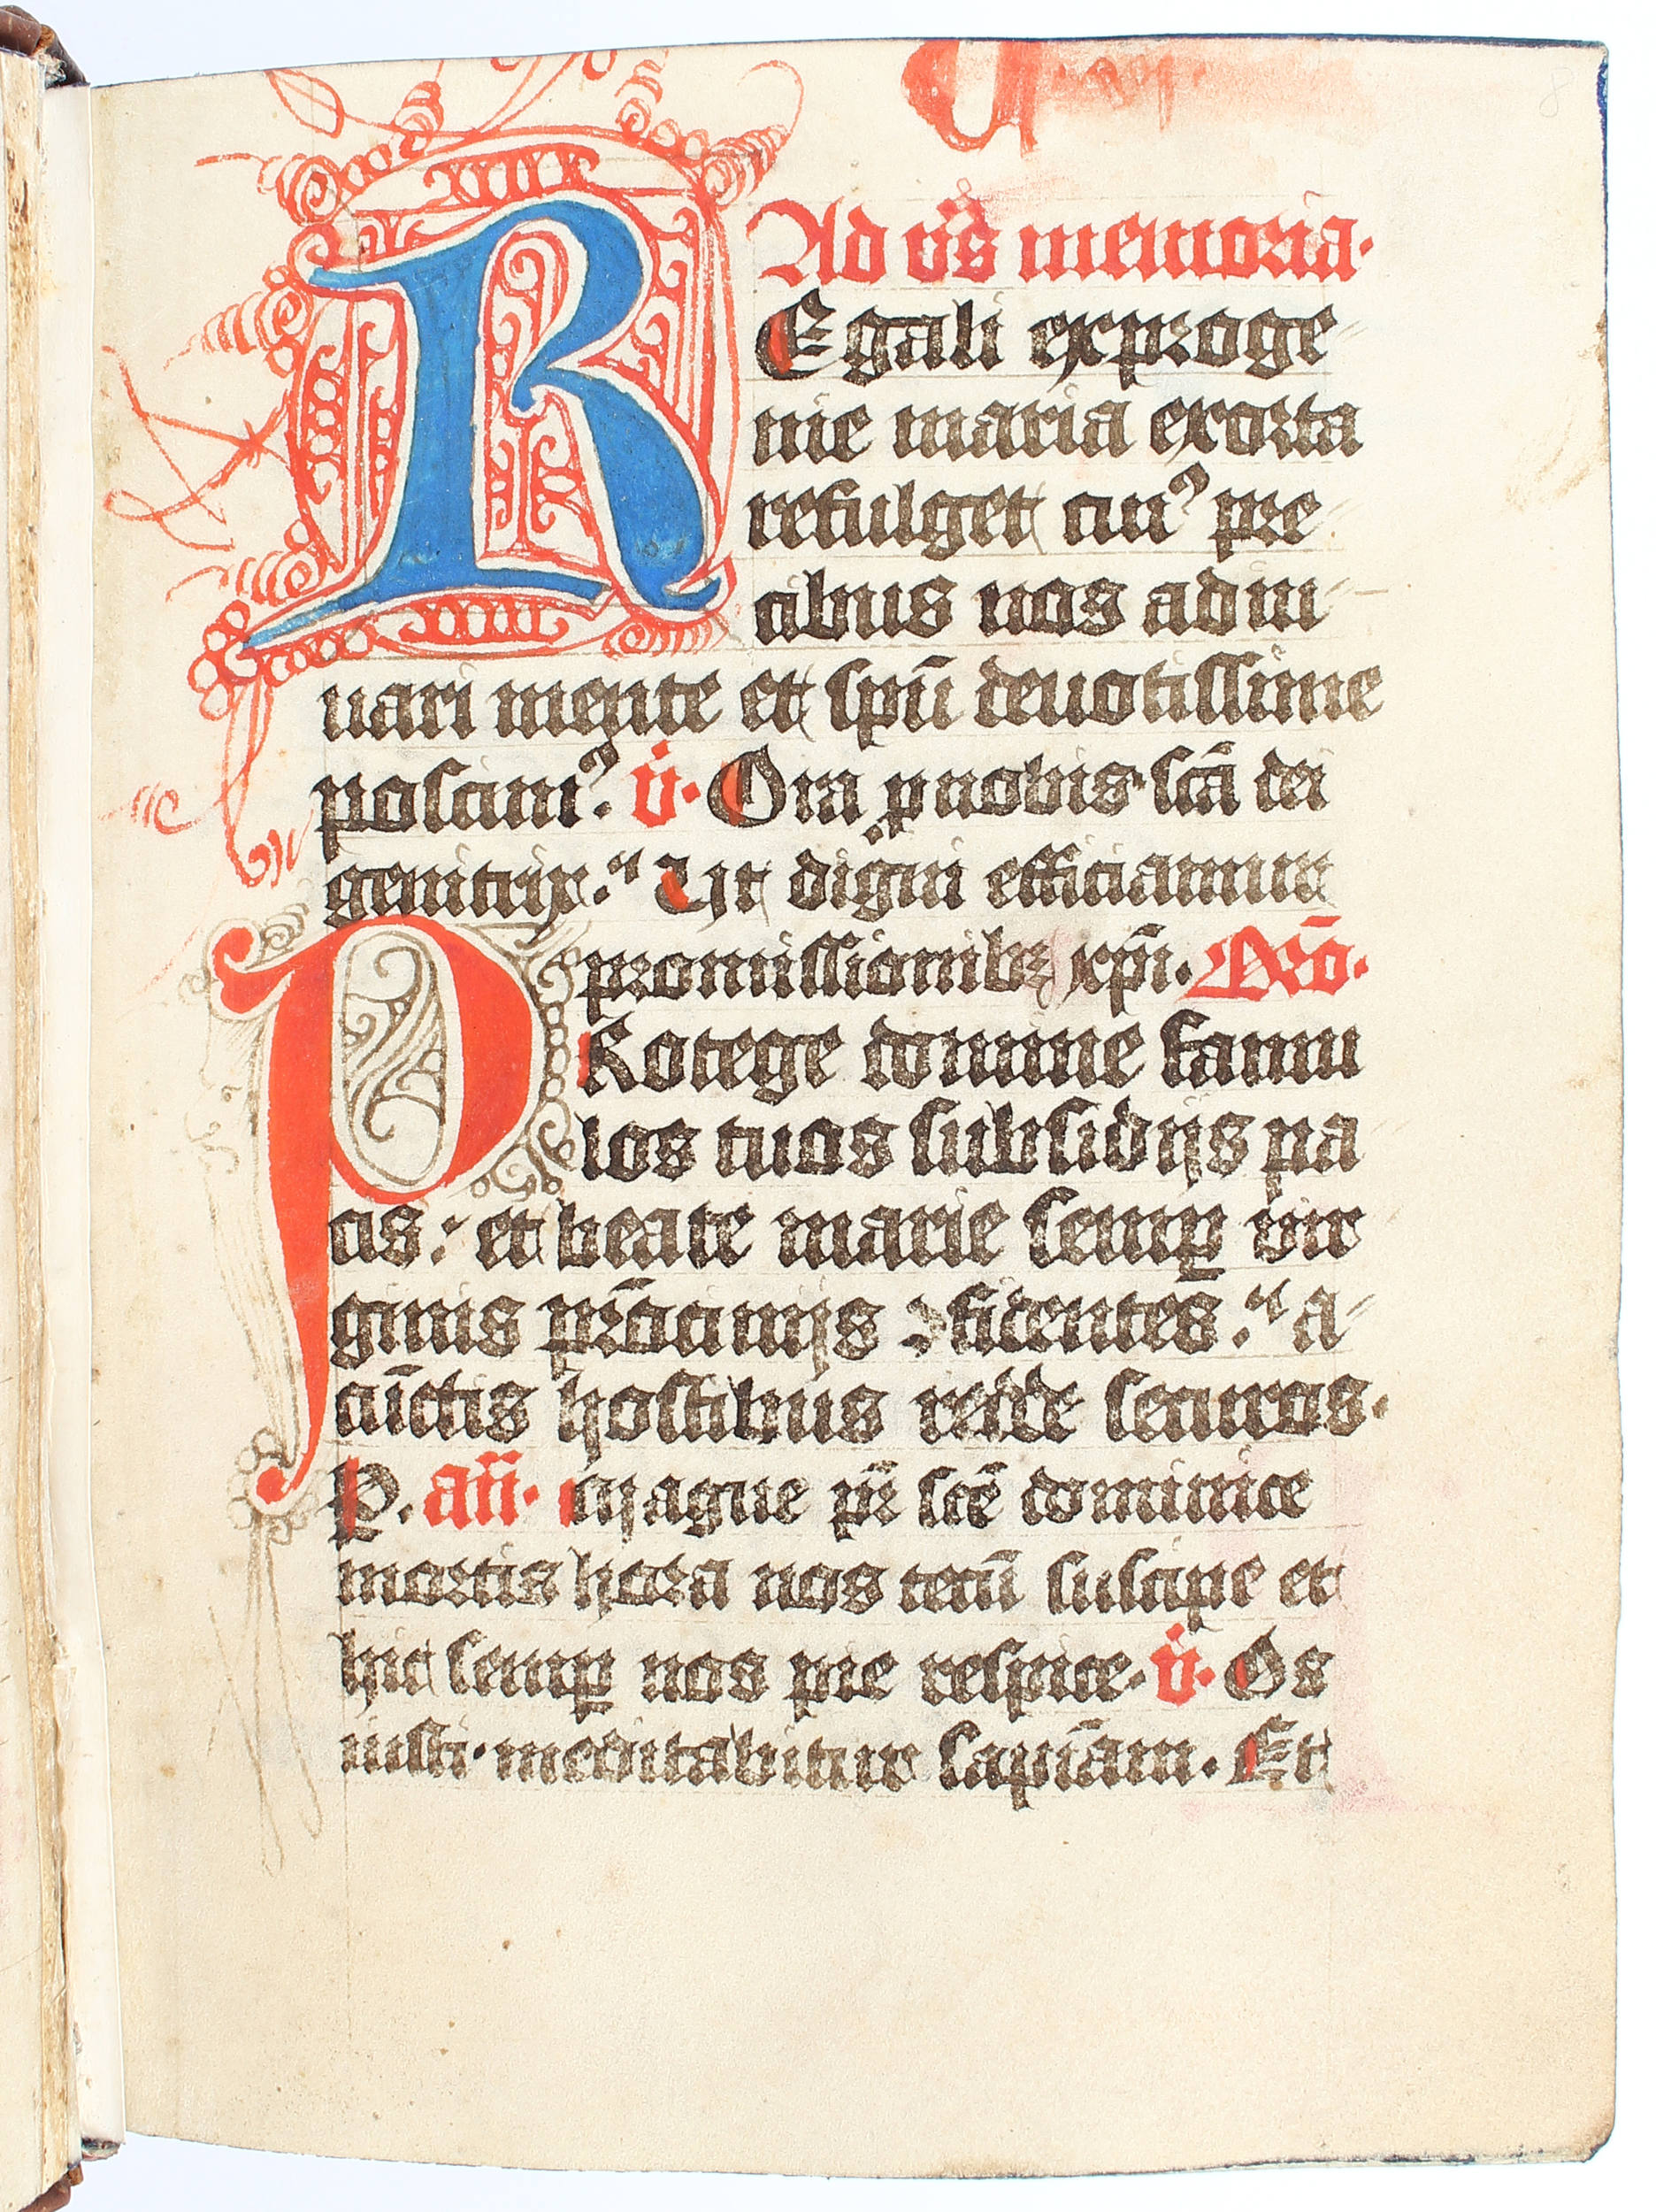 8
Ad vs̄ memoria.
REgali ex proge
nie maria exorta
refulget cuiꝰ pre
cibus nos adiu
uari mente et spū deuotissime
poscimꝰ. v̄. Ora ꝓ nobis scā dei
genitrix. Ut digni efficiamur
promissionibꝫ xpī. Orō.
PRotege domine famu
los tuos subsidijs pa
cis: et beate marie semꝑ vir
ginis pr̄ocinijs ꝯfidentes. a
cūctis hostibus redde securos.
P. an̄. Magne pr̄ scē dominice
mortis hora nos tecū suscipe et
hic semꝑ nos pie respice. v̄. Os
iusti meditabitur sapiām. Et